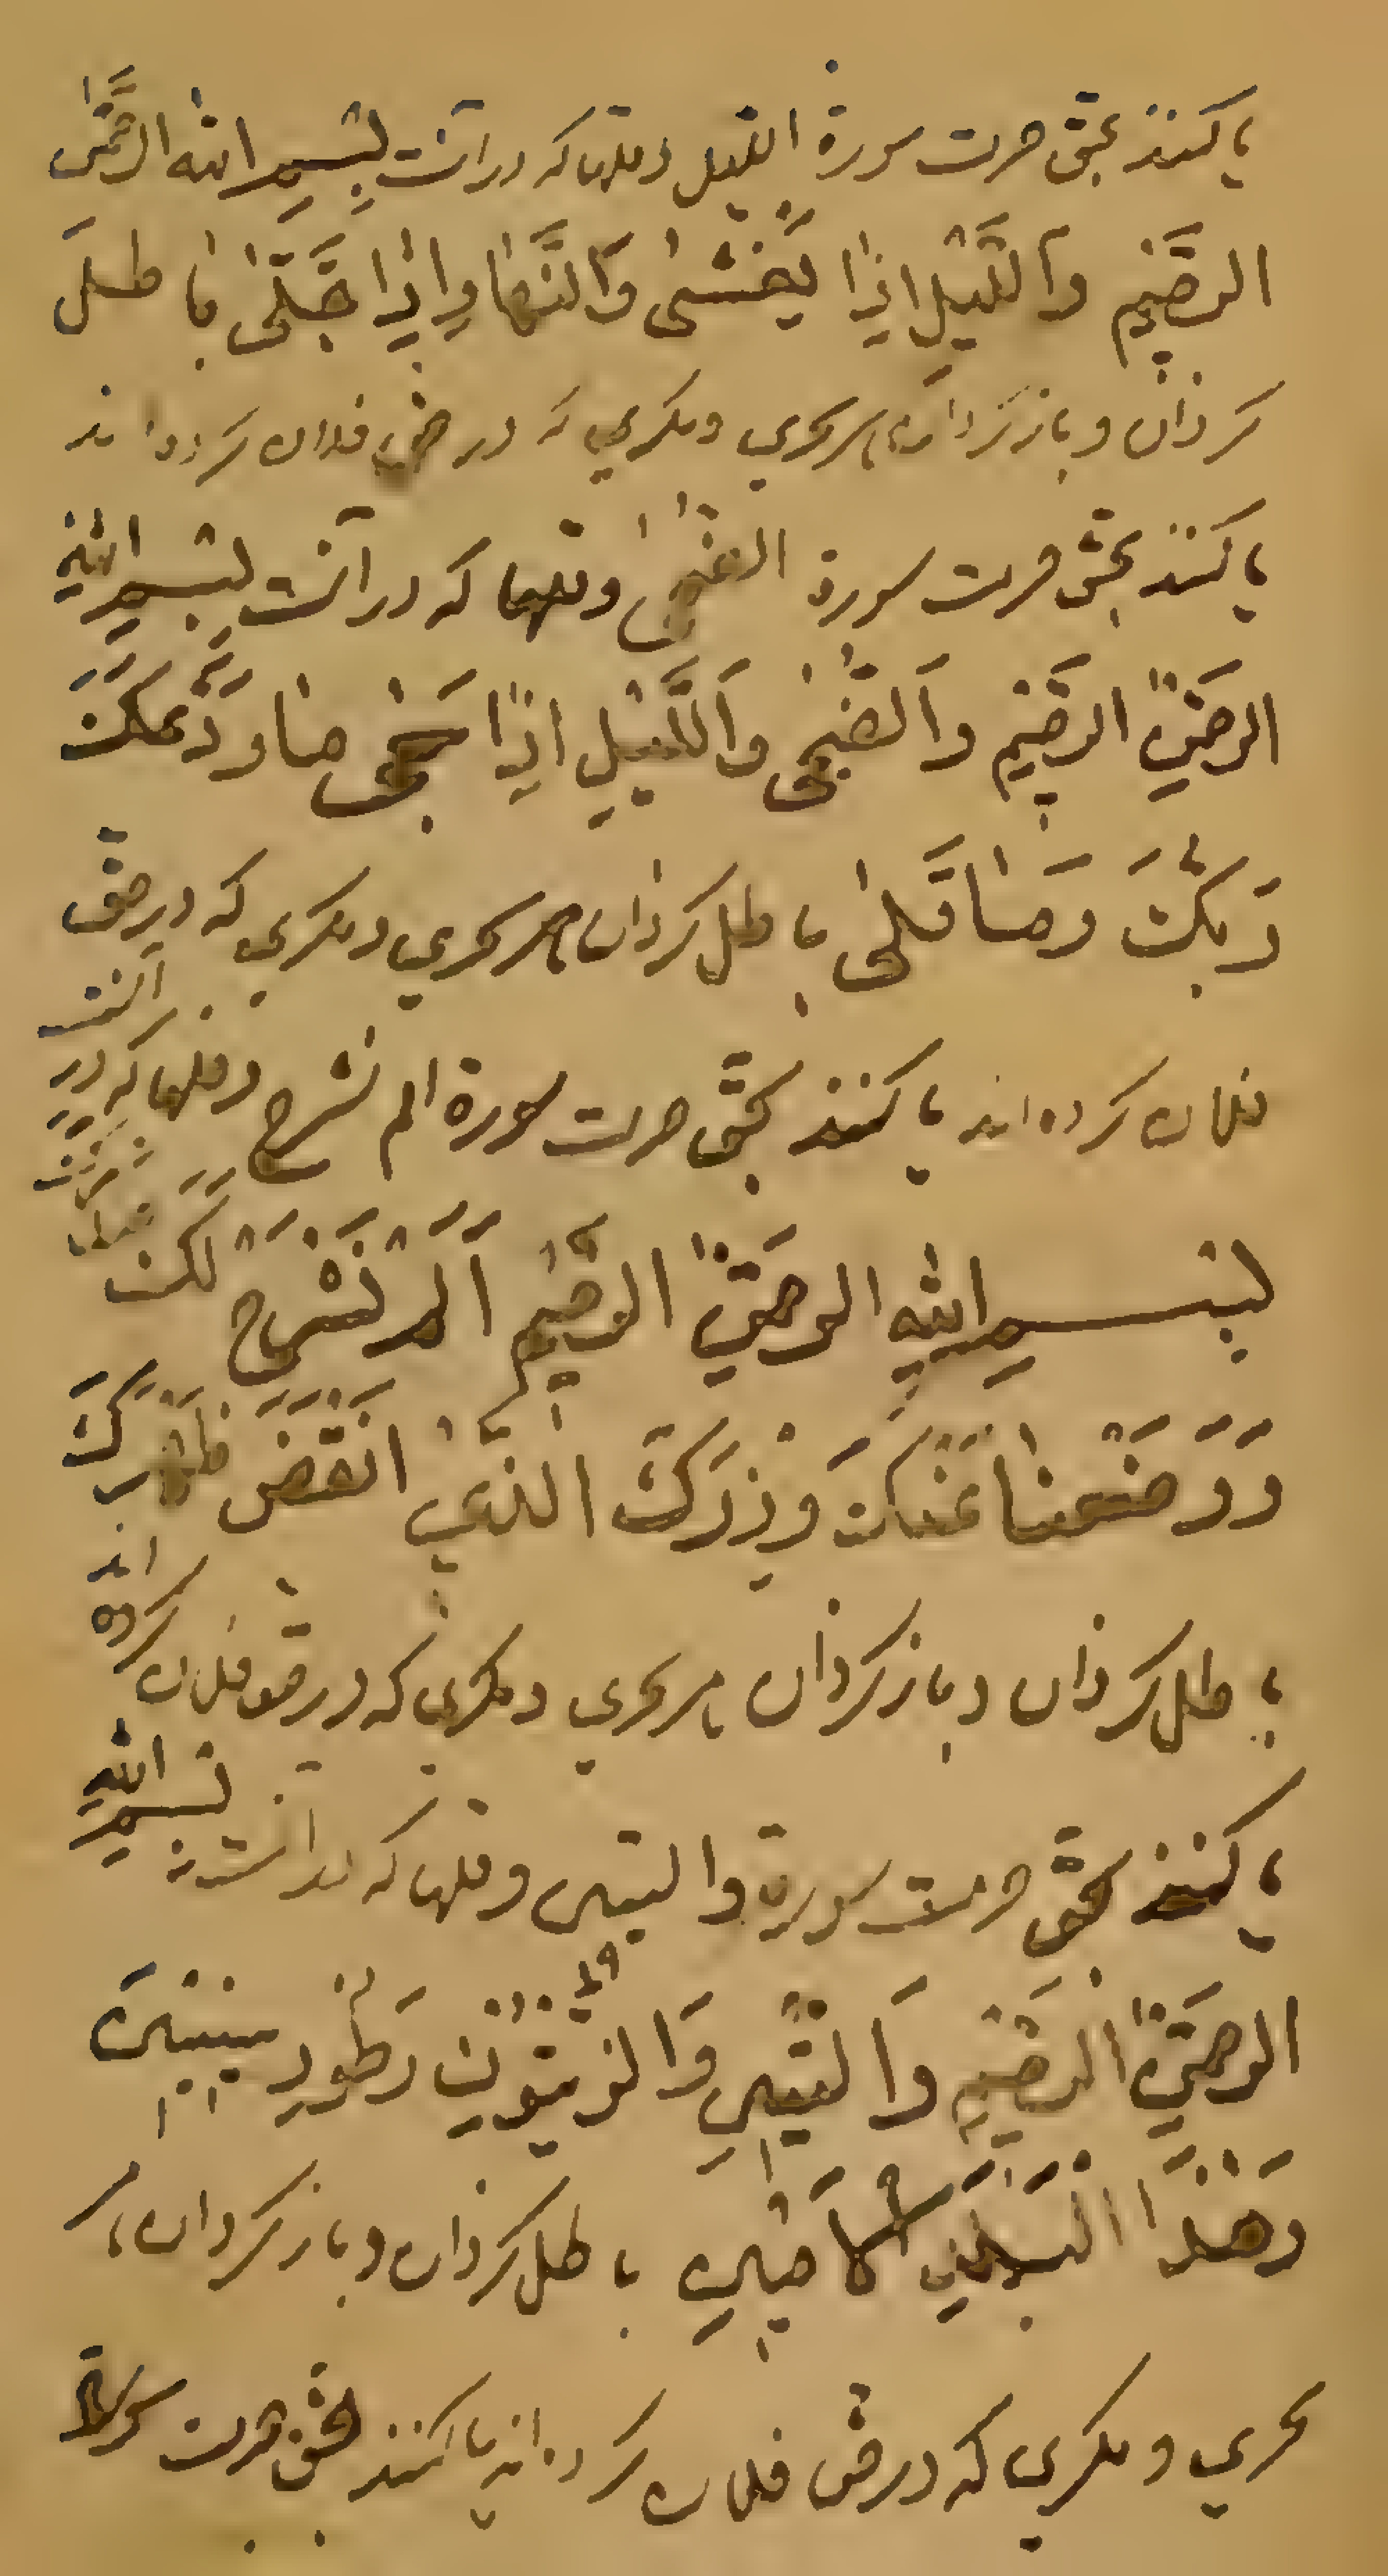 یا کنند بحق حرمت سورة اللیل و کلها که در آنست بِسْمِ اللّه الرَّحْمٰن
الرَّحِیم وَاللَّیْلِ اِذَا یَغْشٰی وَالنَّهَارِ اِذَا تَجَلّٰی باطل
کرذان و باز کردان هر سحری و مکری که در حق فلان کرده اند
یا کنند بحق حرمت سورة الضحی و کلها که در آنست بِسْمِ اللّهِ
الرَّحْمٰنِ الرَّحِیم وَالضُّحٰی وَاللَّیْلِ اِذَا سَجٰی مَا وَدَّعَكَ
رَبُّكَ وَمَا قَلٰی باطل کرذان هر سحری و مکری که در حق
فلان کرده اند یا کنند بحق حرمت سورة الم نشرح و کلها که در آنست
بِسْمِ اللّهِ الرَّحْمٰنِ الرَّحِیم اَلَمْ نَشْرَحْ لَكَ صَدْرَكَ
وَوَضَعْنَا عَنْكَ وِزْرَكَ الَّذِی اَنْقَضَ ظَهْرَكَ
باطل کرذان و باز کرذان هر سحری و مکری که در حق فلان کرده اند
یا کنند بحق حرمت سورة والتین و کلها که در آنست بِسْمِ اللّهِ
الرَّحْمٰنِ الرَّحِیمِ وَالتِّینِ وَالزَّیْتُونِ وَطُورِ سِینِینَ
وَهٰذَا الْبَلَدِ الْاَمِینِ باطل کرذان و باز کردان هر
سحری و مکری که در حق فلان کرده اند یا کنند بحق حرمت سورة